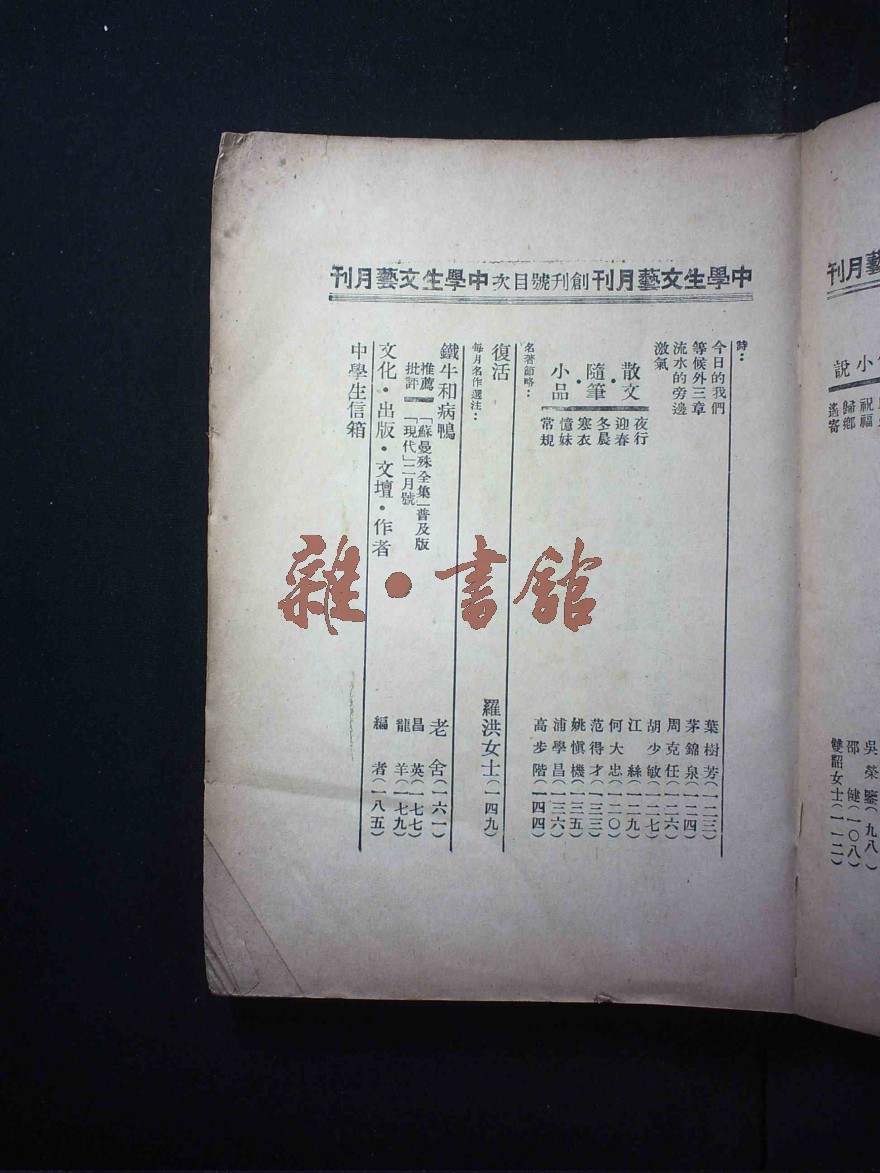 藝月刊
小說
祝福 吳榮鑒(九八)
歸鄉 邵健(一〇八)
遙寄 雙韶女士(一一二)
中學生文藝月刊創刊號目次中學生文藝月刊
詩：
今日的我們 葉樹芳(一二三)
等候外三章 茅錦泉(一二四)
流水的旁邊 周克任(一二六)
激氣 胡少敏(一二七)
散文・隨筆・小品
夜行 江絲(一二九)
迎春 何大忠(一二〇)
冬晨 范得才(一三三)
寒衣 姚愼機(一三五)
憶妹 浦學昌(一三六)
常規 高步階(一四四)
名著節略：
復活 羅洪女士(一四九)
每月名作選注：
鐵牛和病鴨 老舍(一六一)
推薦批評 「蘇曼殊全集」普及版 「現代」二月號 昌英(一七七)
文化・出版・文壇・作者 龍羊(一七九)
中學生信箱 編者(一八五)
雜・書館